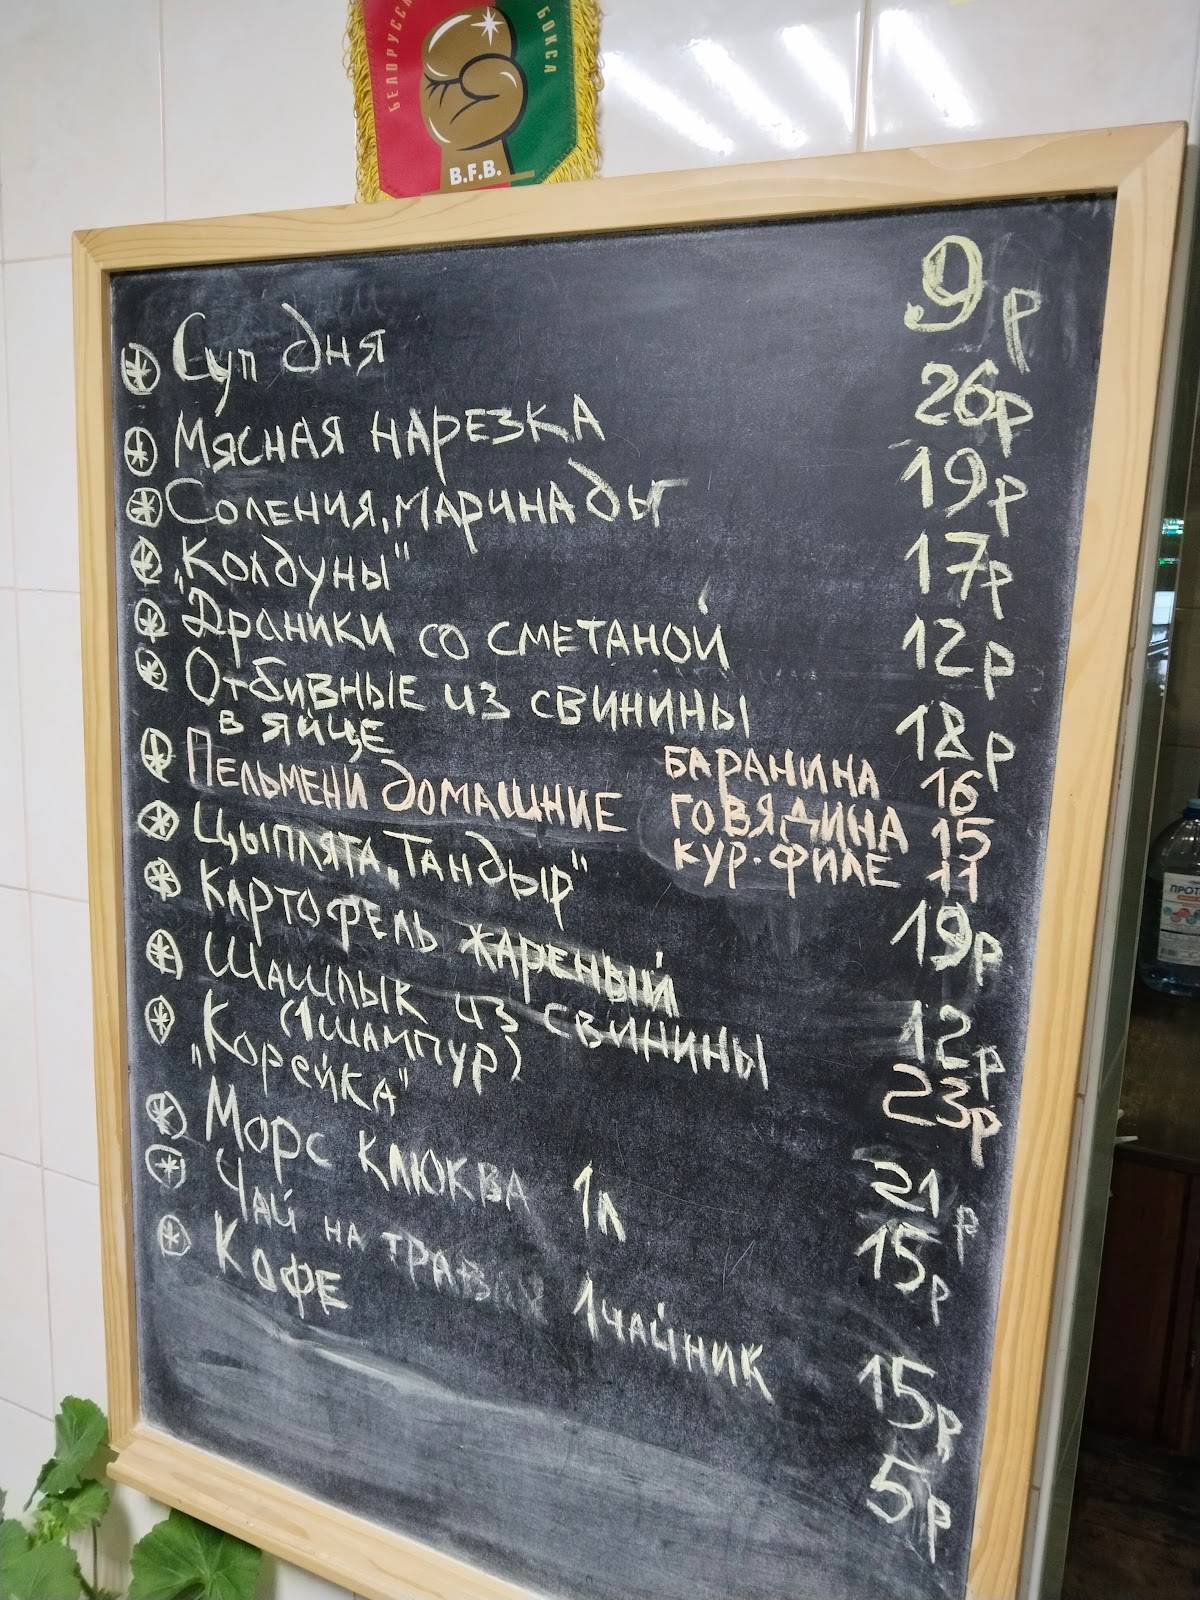 БЕЛОРУССК БОКСА
B.F.B.
Суп дня 9р
Мясная нарезка 26р
Соления, маринады 19р
„Колдуны" 17р
Драники со сметаной 12р
Отбивные из свинины 18р
в яйце
Пельмени домашние баранина 16
говядина 15
кур. филе 11
Цыплята „Тандыр" 19р
Картофель жареный 12р
Шашлык из свинины 23р
(1шампур)
„Корейка" 21р
Морс клюква 1л 15р
Чай на травах 1чайник 15р
Кофе 5р
ПРОТ